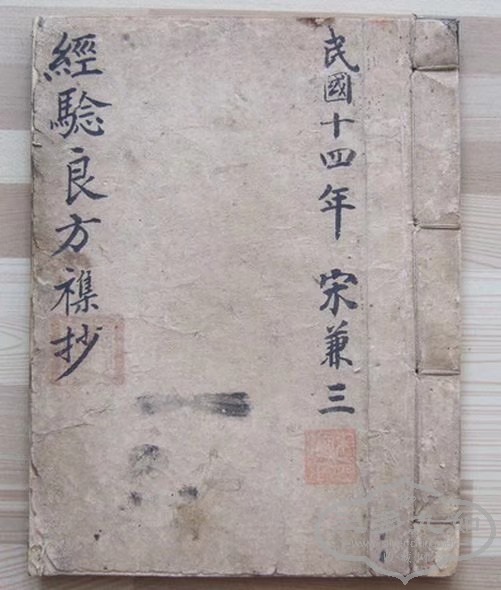 民國十四年 宋兼三
經驗良方襍抄